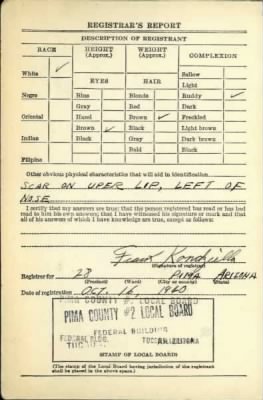 REGISTRAR'S REPORT
DESCRIPTION OF REGISTRANT
RACE HEIGHT (Approx.) WEIGHT (Approx.) COMPLEXION
White ✓ Sallow
EYES HAIR Light
Negro Blue Blonde Ruddy ✓
Gray Red Dark
Oriental Hazel Brown ✓ Freckled
Brown ✓ Black Light brown
Indian Black Gray Dark brown
Bald Black
Filipino
Other obvious physical characteristics that will aid in identification
SCAR ON UPER LIP, LEFT OF
NOSE
I certify that my answers are true; that the person registered has read or has had
read to him his own answers; that I have witnessed his signature or mark and that
all of his answers of which I have knowledge are true, except as follows:
Frank
(Signature of registrar)
Registrar for 28 PIMA ARIZONA
(Precinct) (Ward) (City or county) (State)
Date of registration OCT. 16, 1940
PIMA COUNTY #2 LOCAL BOARD
PIMA COUNTY #2 LOCAL BOARD
FEDERAL BUILDING
FEDERAL BLDG.
TUCSON, ARIZONA
STAMP OF LOCAL BOARD
(The stamp of the Local Board having jurisdiction of the registrant
shall be placed in the above space.)